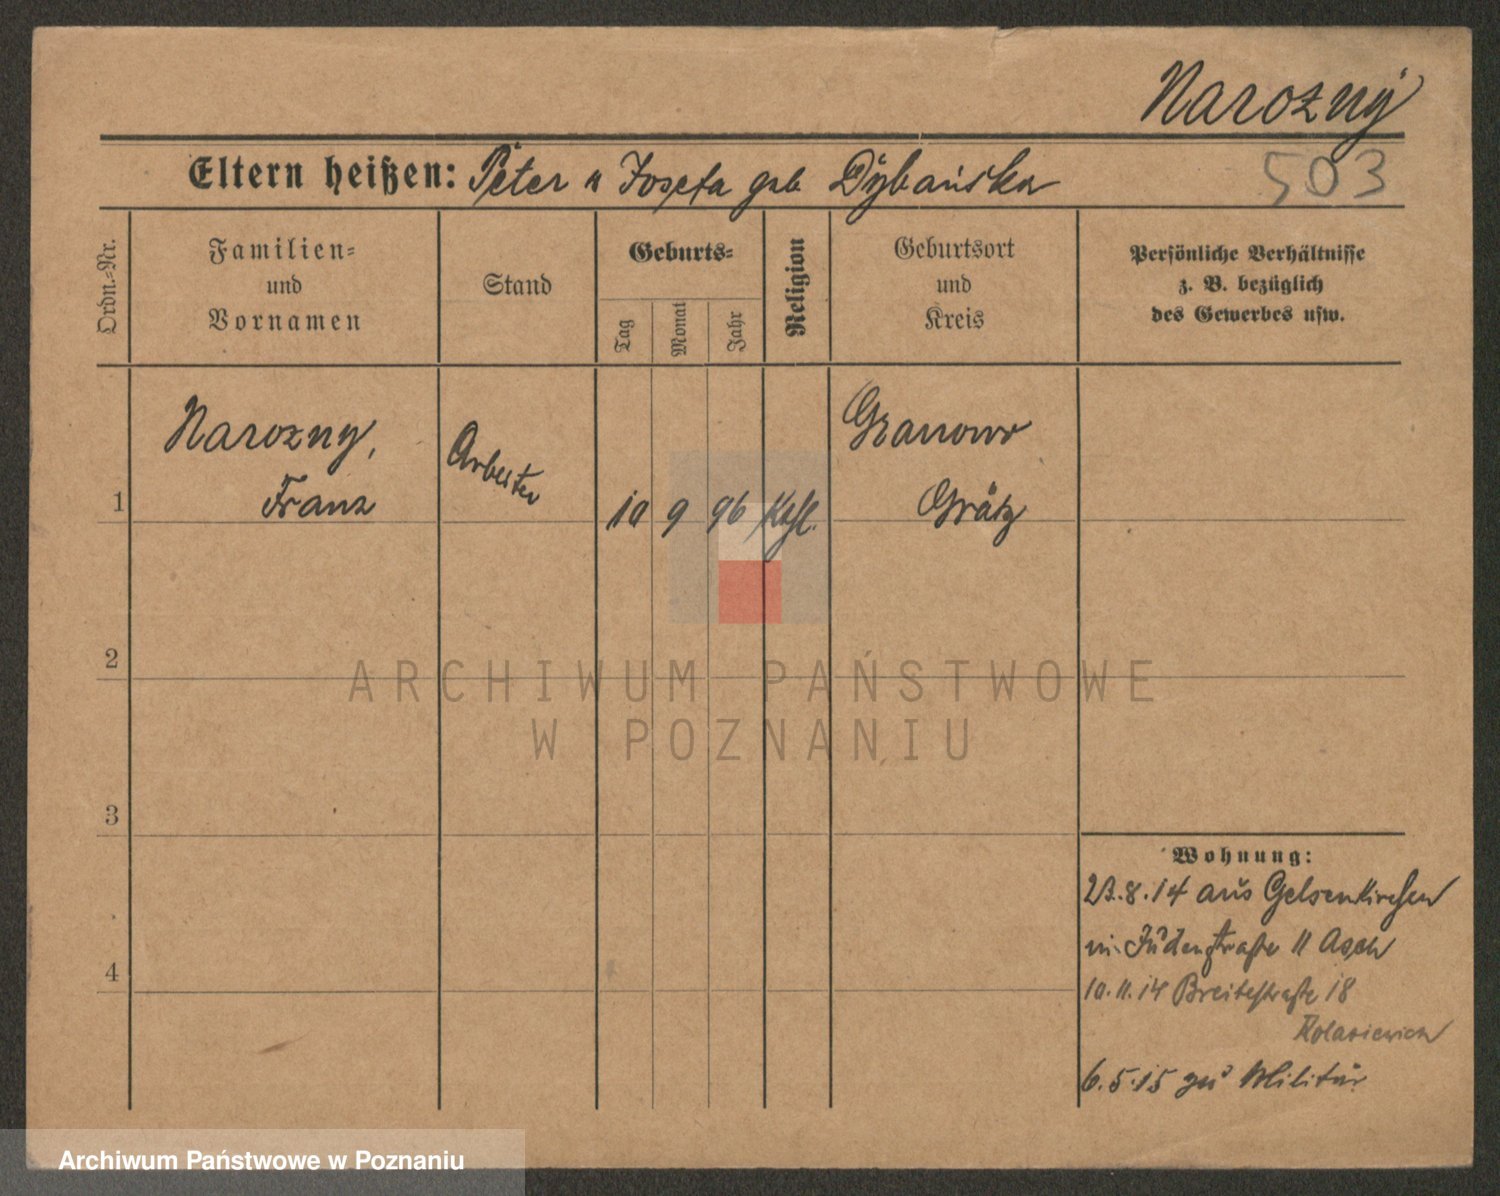 Narozny
Eltern heißen: Peter u Josefa geb Dybańska
503
Ordn.-Nr.
Familien-
und
Vornamen
Stand
Geburts-
Tag
Monat
Jahr
Religion
Geburtsort
und
Kreis
Persönliche Verhältnisse
z. B. bezüglich
des Gewerbes usw.
Narozny,
Franz
Arbeiter
Granowo
Grätz
1
10 9 96 Kath.
2
ARCHIWUM PAŃSTWOWE
W POZNANIU
3
Wohnung:
.8.14 aus Gelsenkirchen
in Judenstraße 11 Asch
4
10.11.14 Breitestraße 18
6.5.15 zu Militär
Archiwum Państwowe w Poznaniu